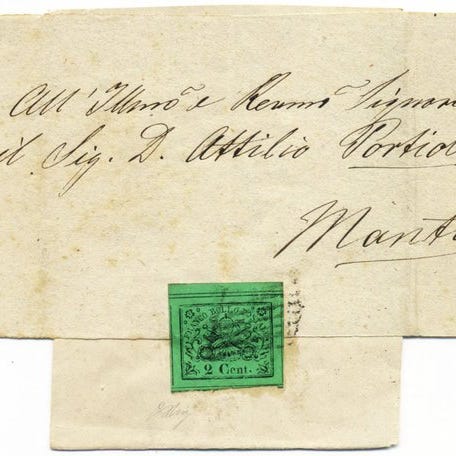 All' Illmo e Revmo Signor
il Sig. D. Attilio Portiol
Mant
FRANCO BOLLO
2 Cent.